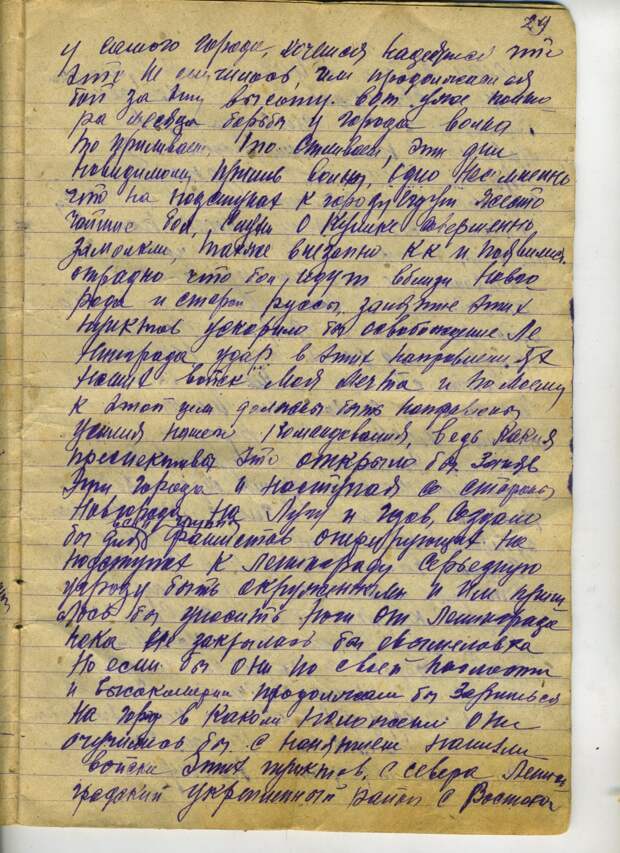 29
у самого города, хочется надеяться что
это не случилось, чем продолжался
бой за эту высоту. вот уже полто
ра месяца борьбы у города волна
то приливает, то отливает, эти дни
повидимому пришли войны, одно несомненно
что на подступах к городу идут жесто
чайшие бои, слухи о Кулике совершенно
замолкли, также внезапно как и появились.
отрадно что бои идут вблизи Новго
рода и старой руссы, занятие этих
пунктов ускорило бы освобождение Ле
нинграда удар в этих направлениях
наших войск моя мечта и по моему
к этой цели должны быть направлены
усилия нашего командования, ведь какие
перспективы это открыло бы заняв
эти города и наступая со стороны
Новгорода на Лугу и Гдов, создало
бы для всей группы фашистов оперирующих на
подступах к Ленинграду серьезную
угрозу быть окруженными и им приш
лось бы уносить ноги от Ленинграда
пока не закрылась бы мышеловка
Но если бы они по своей наглости
и высокомерии продолжали бы зариться
на город в каком положении они
очутились бы с занятием нашими
войсками этих пунктов, с севера Ленин
градский укрепленный район с Востока